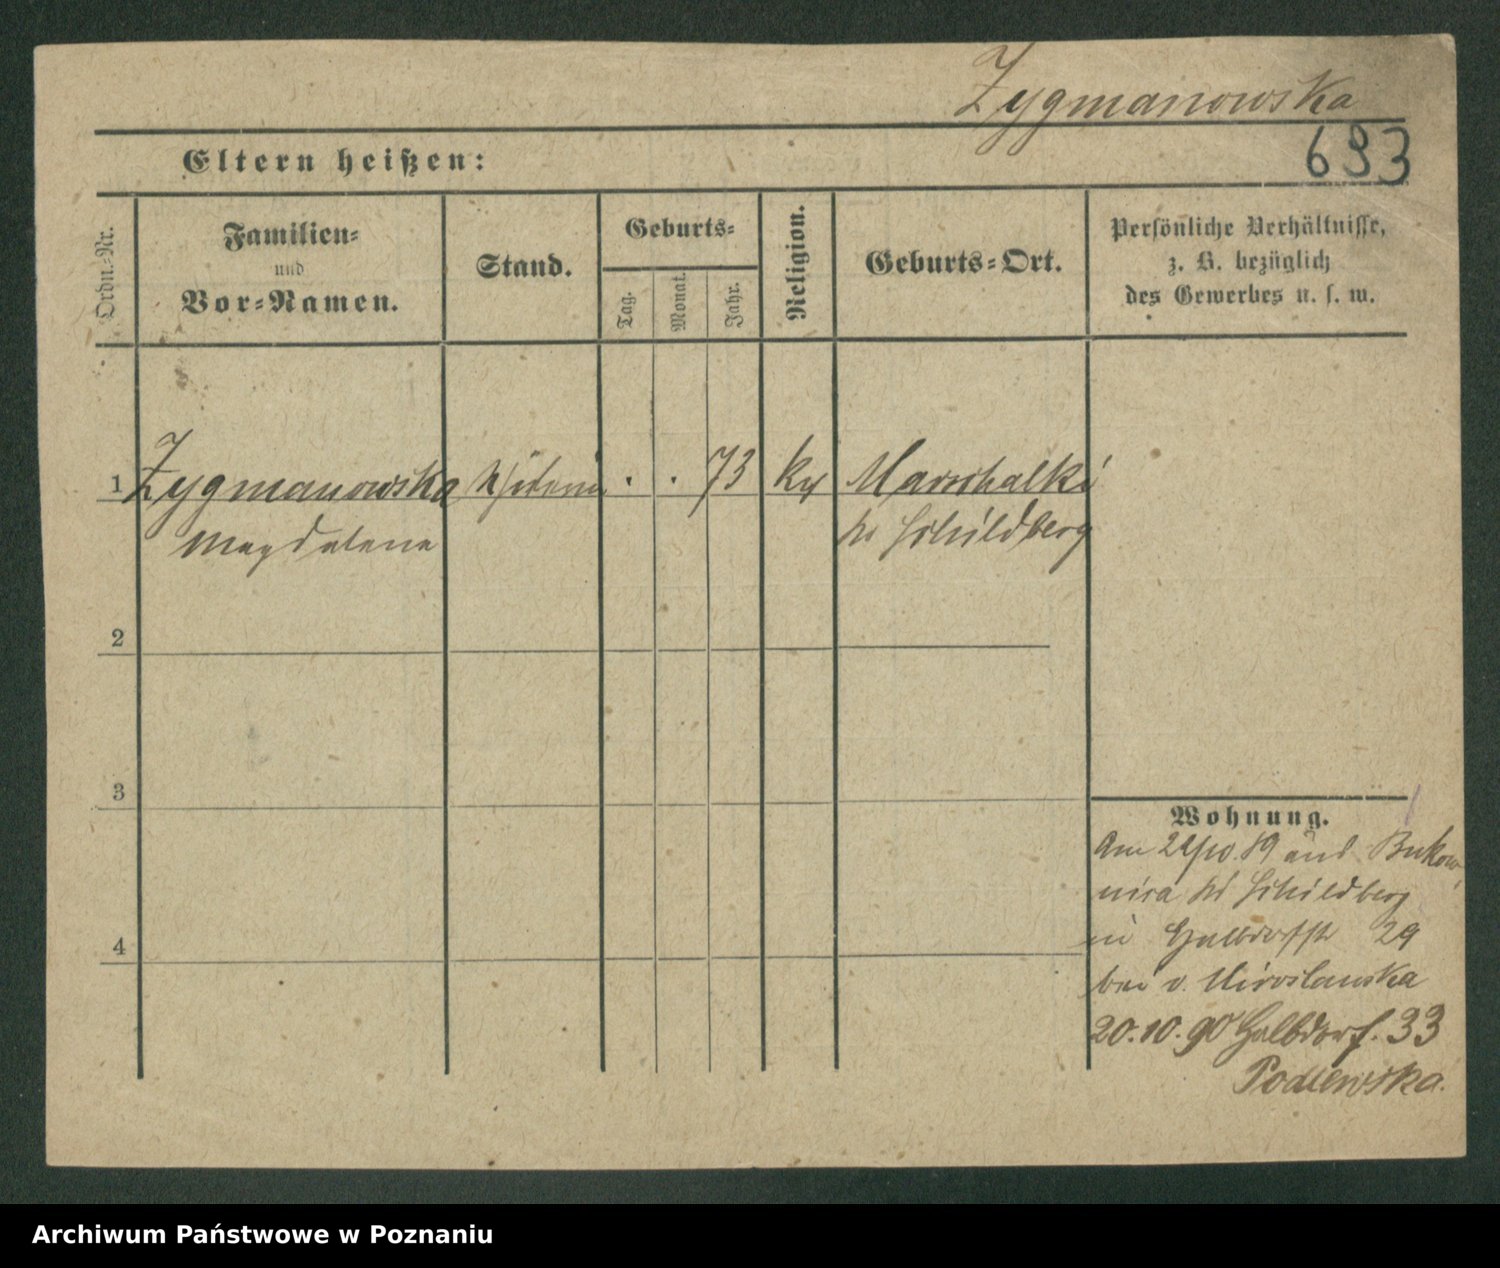 Zygmanowska
693
Eltern heißen:
Ordn.-Nr.
Familien-
und
Vor-Namen.
Stand.
Geburts-
Tag.
Monat.
Jahr.
Religion.
Geburts-Ort.
Persönliche Verhältnisse,
z. B. bezüglich
des Gewerbes u. s. w.
1 Zygmanowska . . 73 Marschalki
Magdalena Schildberg
2
3
4
Wohnung.
Am 22/10. 89 aus Bukow-
nica Schildberg
in Halbdorfstr 29
bei v. Miroslawska
20.10.90 Halbdorf. 33
Podlewska.
Archiwum Państwowe w Poznaniu